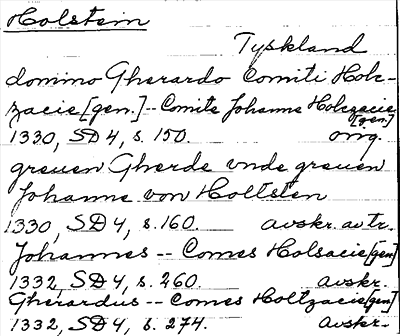 Holstein
Tyskland
domino Gherardo Comiti Holt-
zacie [gen.] -- Comite Johanne Holtzacie
[gen]
1330, SD 4, s. 150. orig.
greuen Gherde vnde greuen
Johanne von Holtsten
1330, SD 4, s. 160. avskr. av tr.
Johannes -- Comes Holsacie [gen]
1332, SD 4, s. 260. avskr.
Gherardus -- Comes Holtzacie [gen]
1332, SD 4, s. 274. avskr.